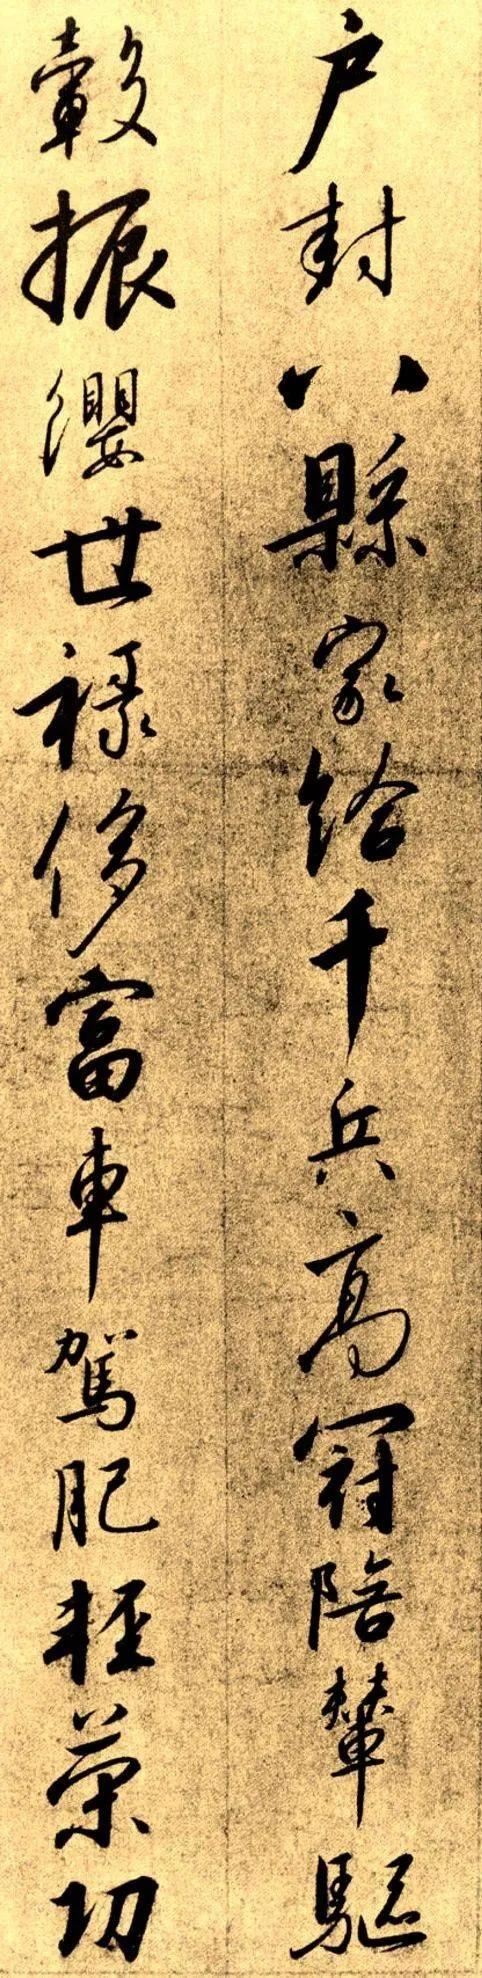 户封八縣家給千兵高冠陪輦驅
轂振纓世祿侈富車駕肥輕策功